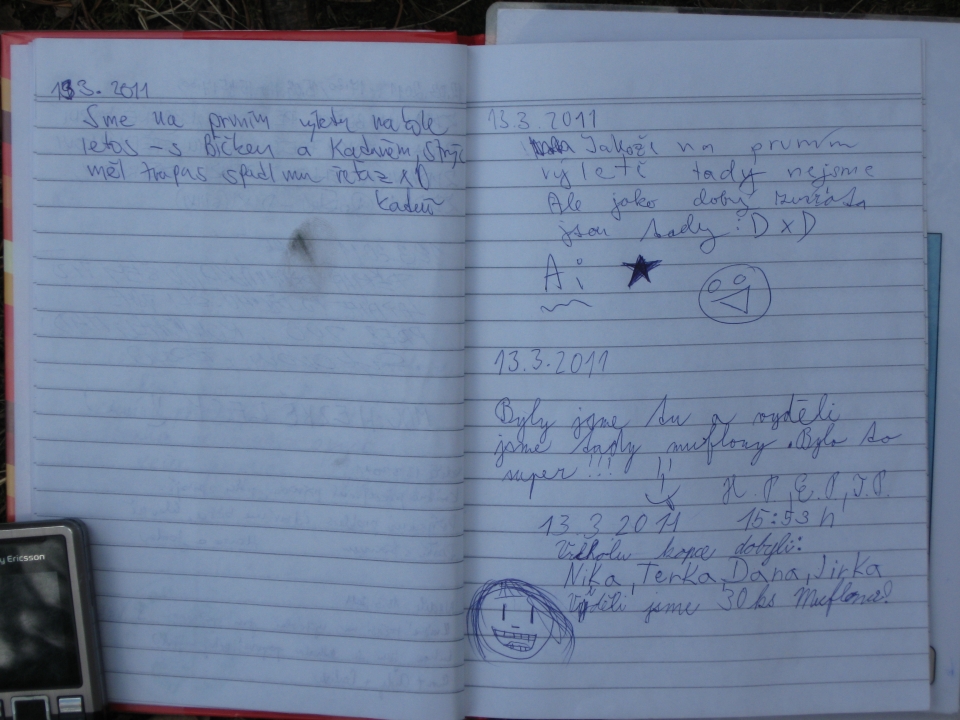 13. 2011
Sme na prvním výletu na kole
letos - s Bičken a Kadusem, strýc
měl trapas spadl mu řetaz xD
Kaduš
13.3. 2011
Jakoži na prvním
výletě tady nejsme
Ale jako dobý
jsou tady :D xD
Ai
13.3.2011
Byly jsme tu a vyděli
jsme tady muflony. Bylo to
super !!! !!
H. P., E. P., T. P.
13.3 2011 15:53 h
Vrcholu kopce dobyli:
Nika, Terka, Dana, Jirka
Vyděli jsme 30 ks Muflona!
y Ericsson